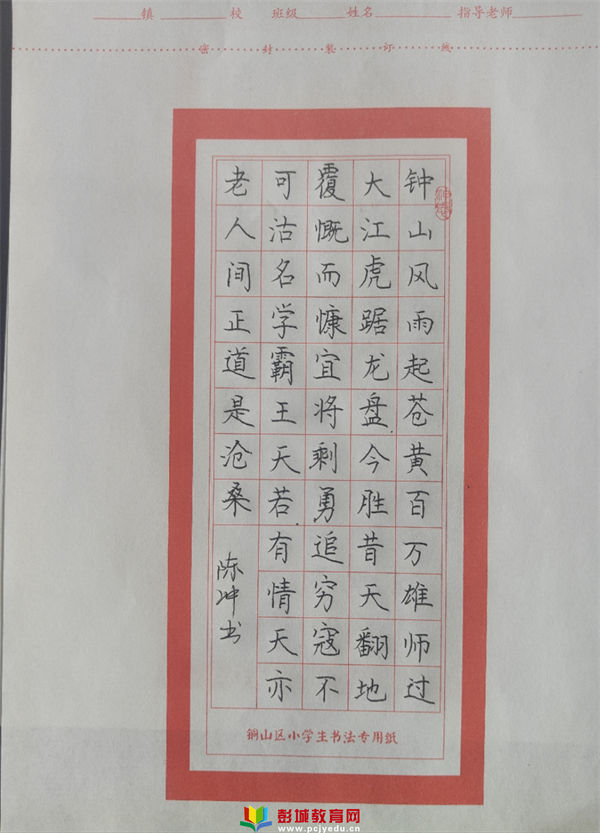 镇 校 班级 姓名 指导老师
密 封 装 订 线
钟山风雨起苍黄百万雄师过
大江虎踞龙盘今胜昔天翻地
覆慨而慷宜将剩勇追穷寇不
可沽名学霸王天若有情天亦
老人间正道是沧桑
陈冲书
铜山区小学生书法专用纸
彭城教育网
www.pcjyedu.cn